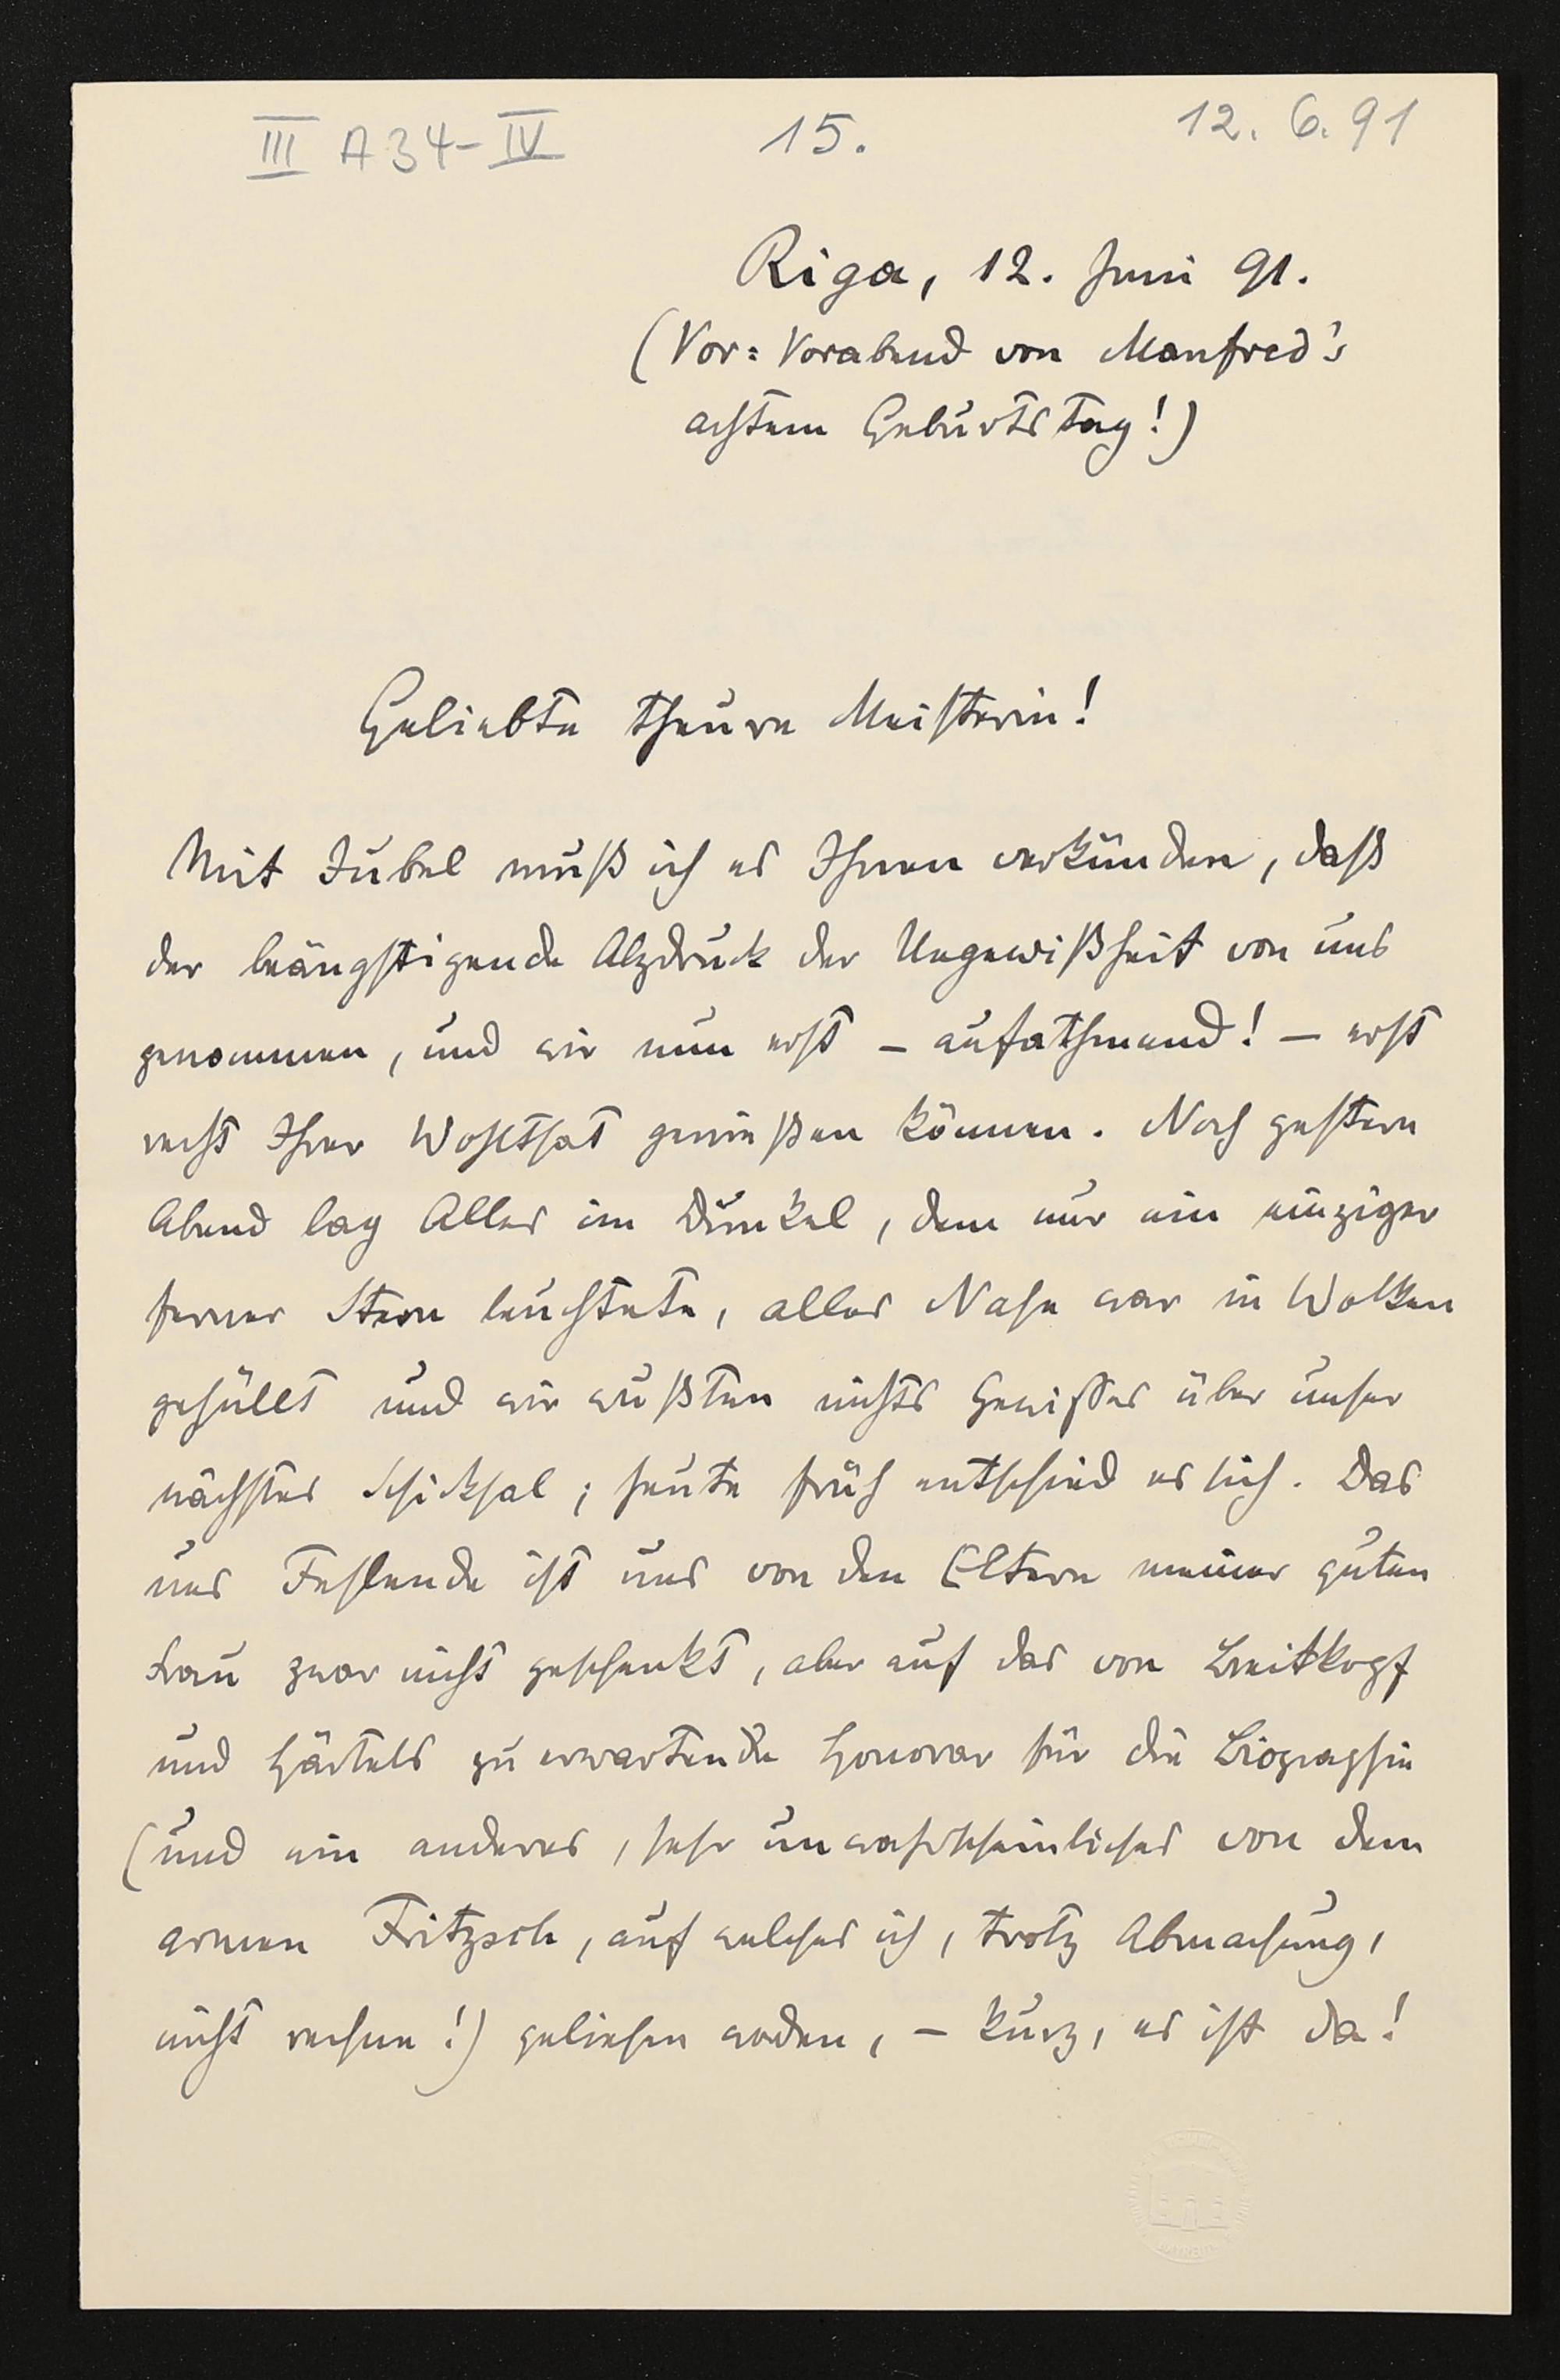 III A 34-IV 15. 12. 6. 91
Riga, 12. Juni 91.
(Vor= Vorabend von Manfred's
achtem Geburtstag!)
Geliebte theure Meisterin!
Mit Jubel muß ich es Ihnen verkünden, daß
der beängstigende Alpdruck der Ungewißheit von uns
genommen, und wir nun erst – aufathmend! – erst
recht Ihrer Wohlthat genießen können. Noch gestern
Abend lag Alles im Dunkel, dem nur ein einziger
ferner Stern leuchtete, alles Nahe war in Wolken
gehüllt und wir wußten nichts Gewisses über unser
nächstes Schicksal; heute früh entschied es sich. Das
uns Fehlende ist uns von den Eltern meiner guten
Frau zwar nicht geschenkt, aber auf das von Breitkopf
und Härtels zu erwartende Honorar für die Biographie
(und ein anderes, sehr unwahrscheinliches von dem
armen Fritzsch, auf welches ich, trotz Abmachung,
nicht rechne!) geliehen worden, – kurz, es ist da!